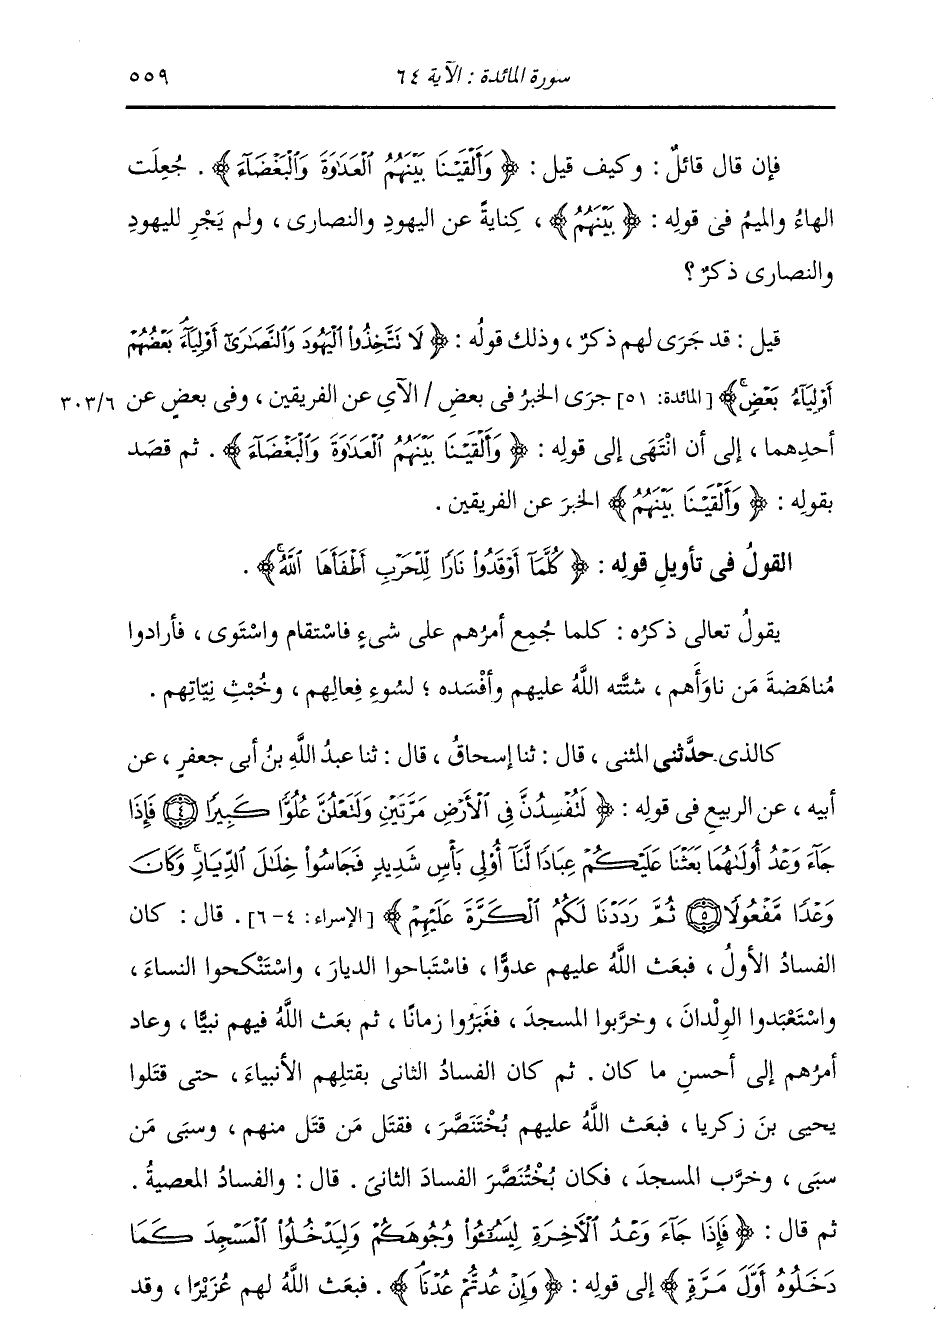 سورة المائدة : الآية ٦٤ ٥٥٩
فإن قال قائلٌ : وكيف قيل : ﴿ وَأَلْقَيْنَا بَيْنَهُمُ الْعَدَاوَةَ وَالْبَغْضَاءَ ﴾ . جُعِلَت
الهاءُ والميمُ فى قولِه : ﴿ بَيْنَهُمُ ﴾ ، كِنايةً عن اليهودِ والنصارى ، ولم يَجْرِ لليهودِ
والنصارى ذكرٌ ؟
قيل : قد جَرَى لهم ذكرٌ ، وذلك قولُه : ﴿ لَا تَتَّخِذُوا الْيَهُودَ وَالنَّصَارَى أَوْلِيَاءَ بَعْضُهُمْ
أَوْلِيَاءُ بَعْضٍ ﴾ [ المائدة: ٥١ ] جرَى الخبرُ فى بعضِ / الآيِ عن الفريقين ، وفى بعضٍ عن ٣٠٣/٦
أحدِهما ، إلى أن انْتَهَى إلى قولِه : ﴿ وَأَلْقَيْنَا بَيْنَهُمُ الْعَدَاوَةَ وَالْبَغْضَاءَ ﴾ . ثم قصَد
بقولِه : ﴿ وَأَلْقَيْنَا بَيْنَهُمُ ﴾ الخبرَ عن الفريقين .
القولُ فى تأويلِ قولِه : ﴿ كُلَّمَا أَوْقَدُوا نَارًا لِّلْحَرْبِ أَطْفَأَهَا اللَّهُ ﴾ .
يقولُ تعالى ذكرُه : كلما جُمِع أمرُهم على شىءٍ فاسْتقام واسْتَوى ، فأرادوا
مُناهَضةَ مَن ناوَأَهم ، شتَّته اللَّهُ عليهم وأفْسَده ؛ لسُوءِ فِعالِهم ، وخُبْثِ نِيّاتِهم .
كالذى حدَّثنى المثنى ، قال : ثنا إسحاقُ ، قال : ثنا عبدُ اللَّهِ بنُ أبى جعفرٍ ، عن
أبيه ، عن الربيعِ فى قولِه : ﴿ لَتُفْسِدُنَّ فِي الْأَرْضِ مَرَّتَيْنِ وَلَتَعْلُنَّ عُلُوًّا كَبِيرًا ۝٤ فَإِذَا
جَاءَ وَعْدُ أُولَاهُمَا بَعَثْنَا عَلَيْكُمْ عِبَادًا لَّنَا أُوْلِي بَأْسٍ شَدِيدٍ فَجَاسُوا خِلَالَ الدِّيَارِ وَكَانَ
وَعْدًا مَّفْعُولًا ۝٥ ثُمَّ رَدَدْنَا لَكُمُ الْكَرَّةَ عَلَيْهِمْ ﴾ [ الإسراء: ٤- ٦ ] . قال : كان
الفسادُ الأولُ ، فبعَث اللَّهُ عليهم عدوًّا ، فاسْتباحوا الديارَ ، واسْتَنْكحوا النساءَ ،
واسْتَعْبَدوا الوِلْدانَ ، وخرَّبوا المسجدَ ، فغَبَرُوا زمانًا ، ثم بعَث اللَّهُ فيهم نبيًّا ، وعاد
أمرُهم إلى أحسنِ ما كان . ثم كان الفسادُ الثانى بقتلِهم الأنبياءَ ، حتى قتَلوا
يحيى بنَ زكريا ، فبعَث اللَّهُ عليهم بُخْتَنَصَّرَ ، فقتَل مَن قتَل منهم ، وسبَى مَن
سبَى ، وخرَّب المسجدَ ، فكان بُخْتُنَصَّرَ الفسادَ الثانىَ . قال : والفسادُ المعصيةُ .
ثم قال : ﴿ فَإِذَا جَاءَ وَعْدُ الْآخِرَةِ لِيَسُوءُوا وُجُوهَكُمْ وَلِيَدْخُلُوا الْمَسْجِدَ كَمَا
دَخَلُوهُ أَوَّلَ مَرَّةٍ ﴾ إلى قولِه : ﴿ وَإِنْ عُدتُّمْ عُدْنَا ﴾ . فبعَث اللَّهُ لهم عُزَيْرًا ، وقد